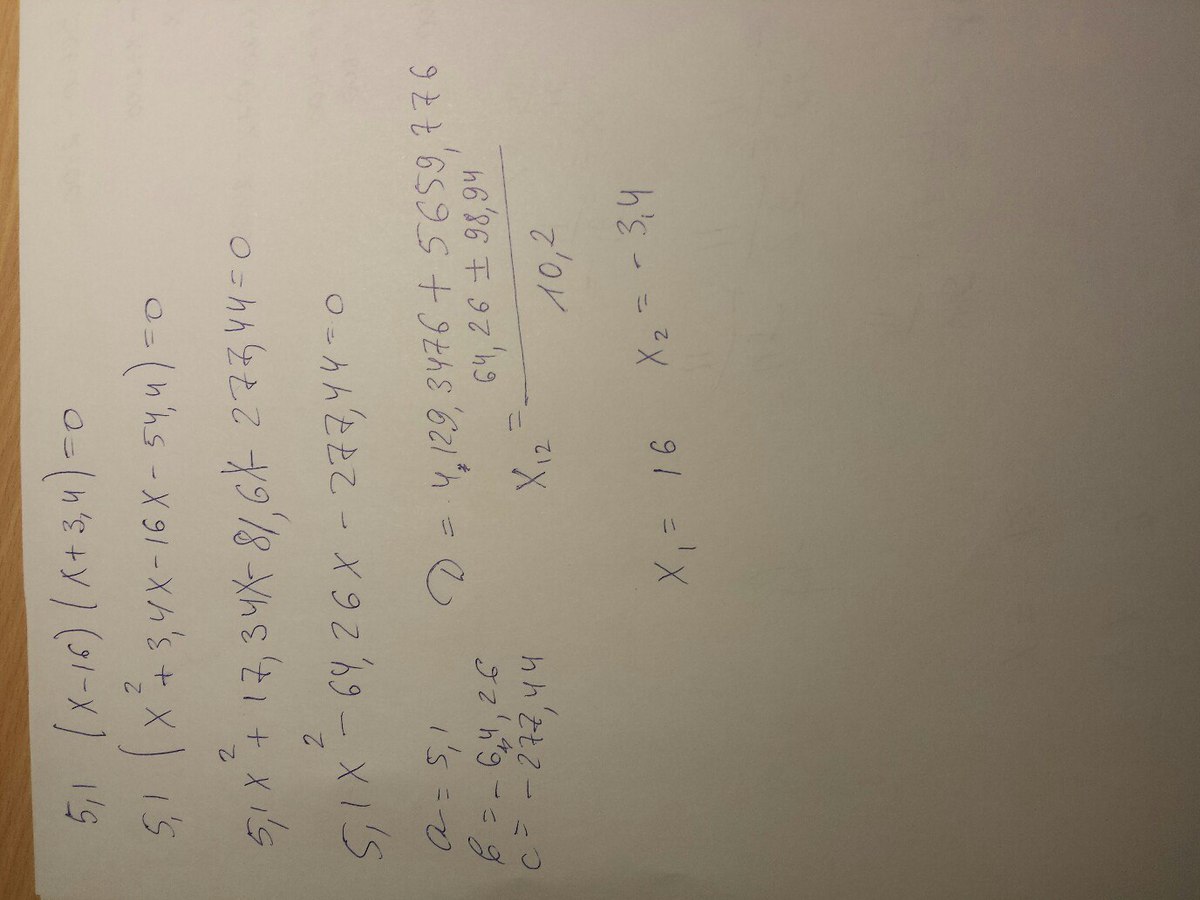 5,1 (x-16)(x+3,4)=0
5,1 (x² +3,4x-16x-54,4)=0
5,1x² + 17,34x-81,6x- 277,44=0
5,1x² - 64,26x - 277,44=0
a=5,1
b=-64,26
c=-277,44
D = 4129,3476 + 5659,776
x₁₂ = (64,26 ± 98,94) / 10,2
x₁ = 16 x₂ = -3,4